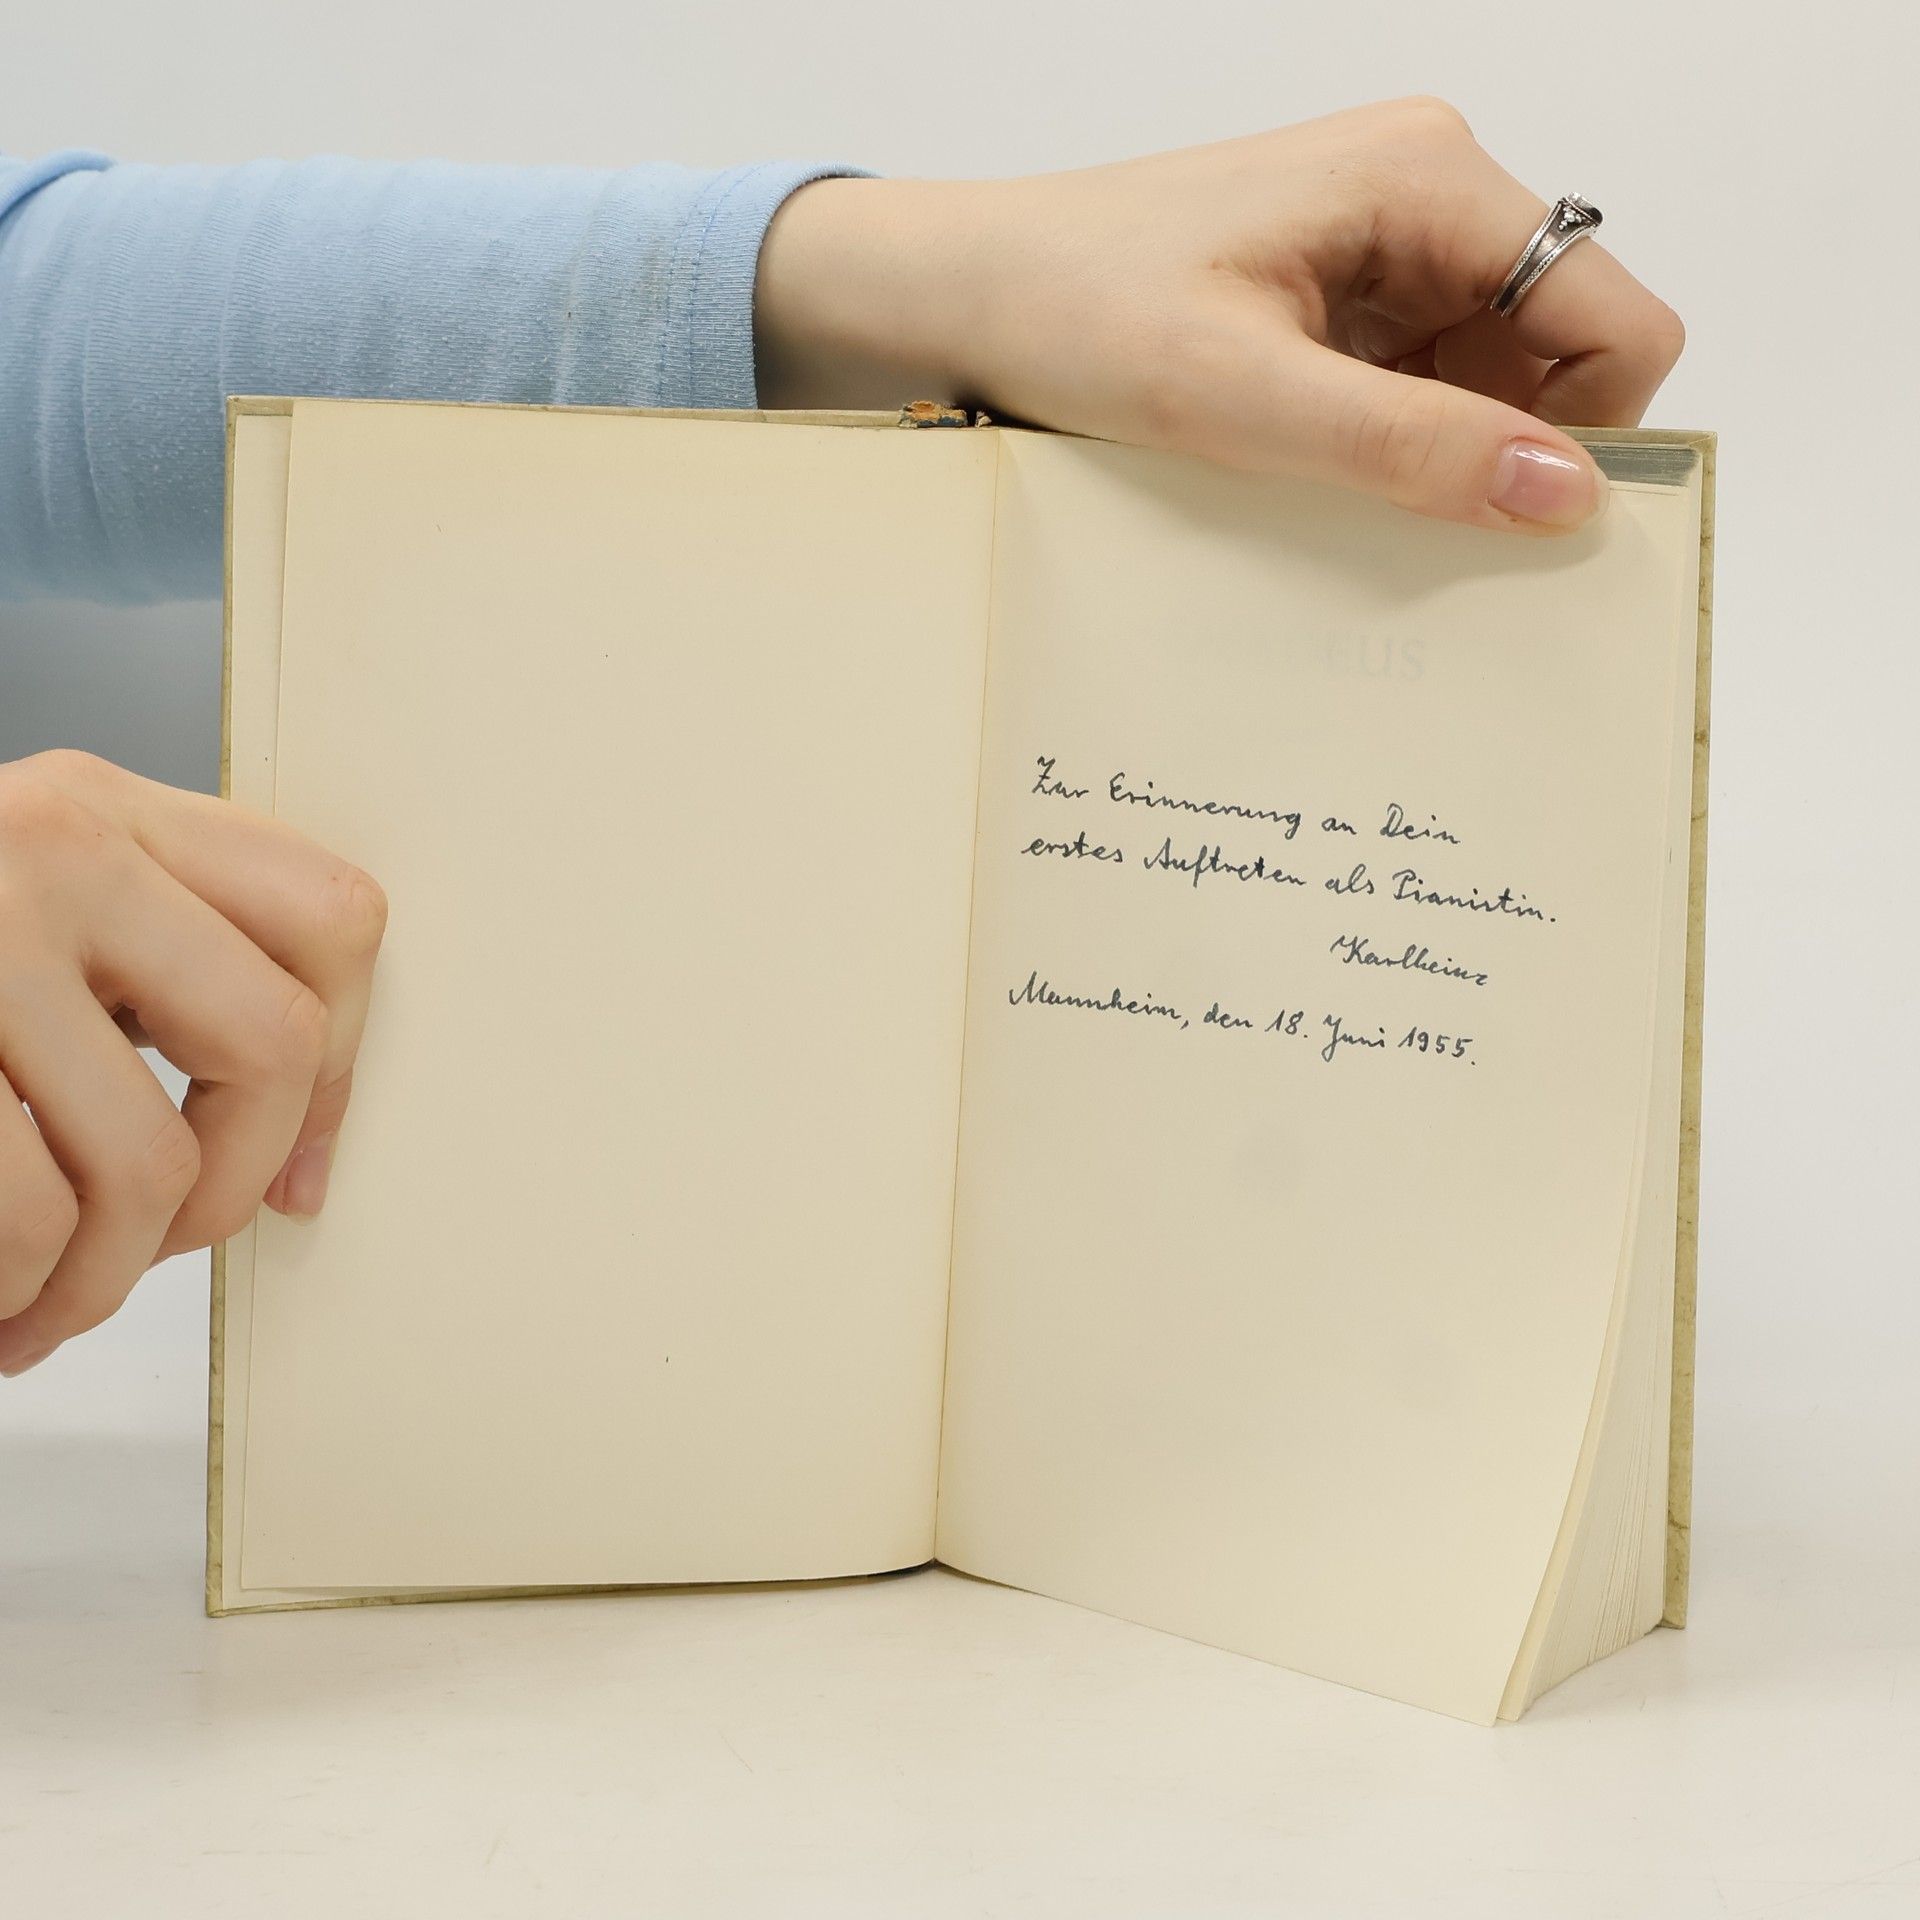 Zur Erinnerung an Dein
erstes Auftreten als Pianistin.
Karlheinz
Mannheim, den 18. Juni 1955.